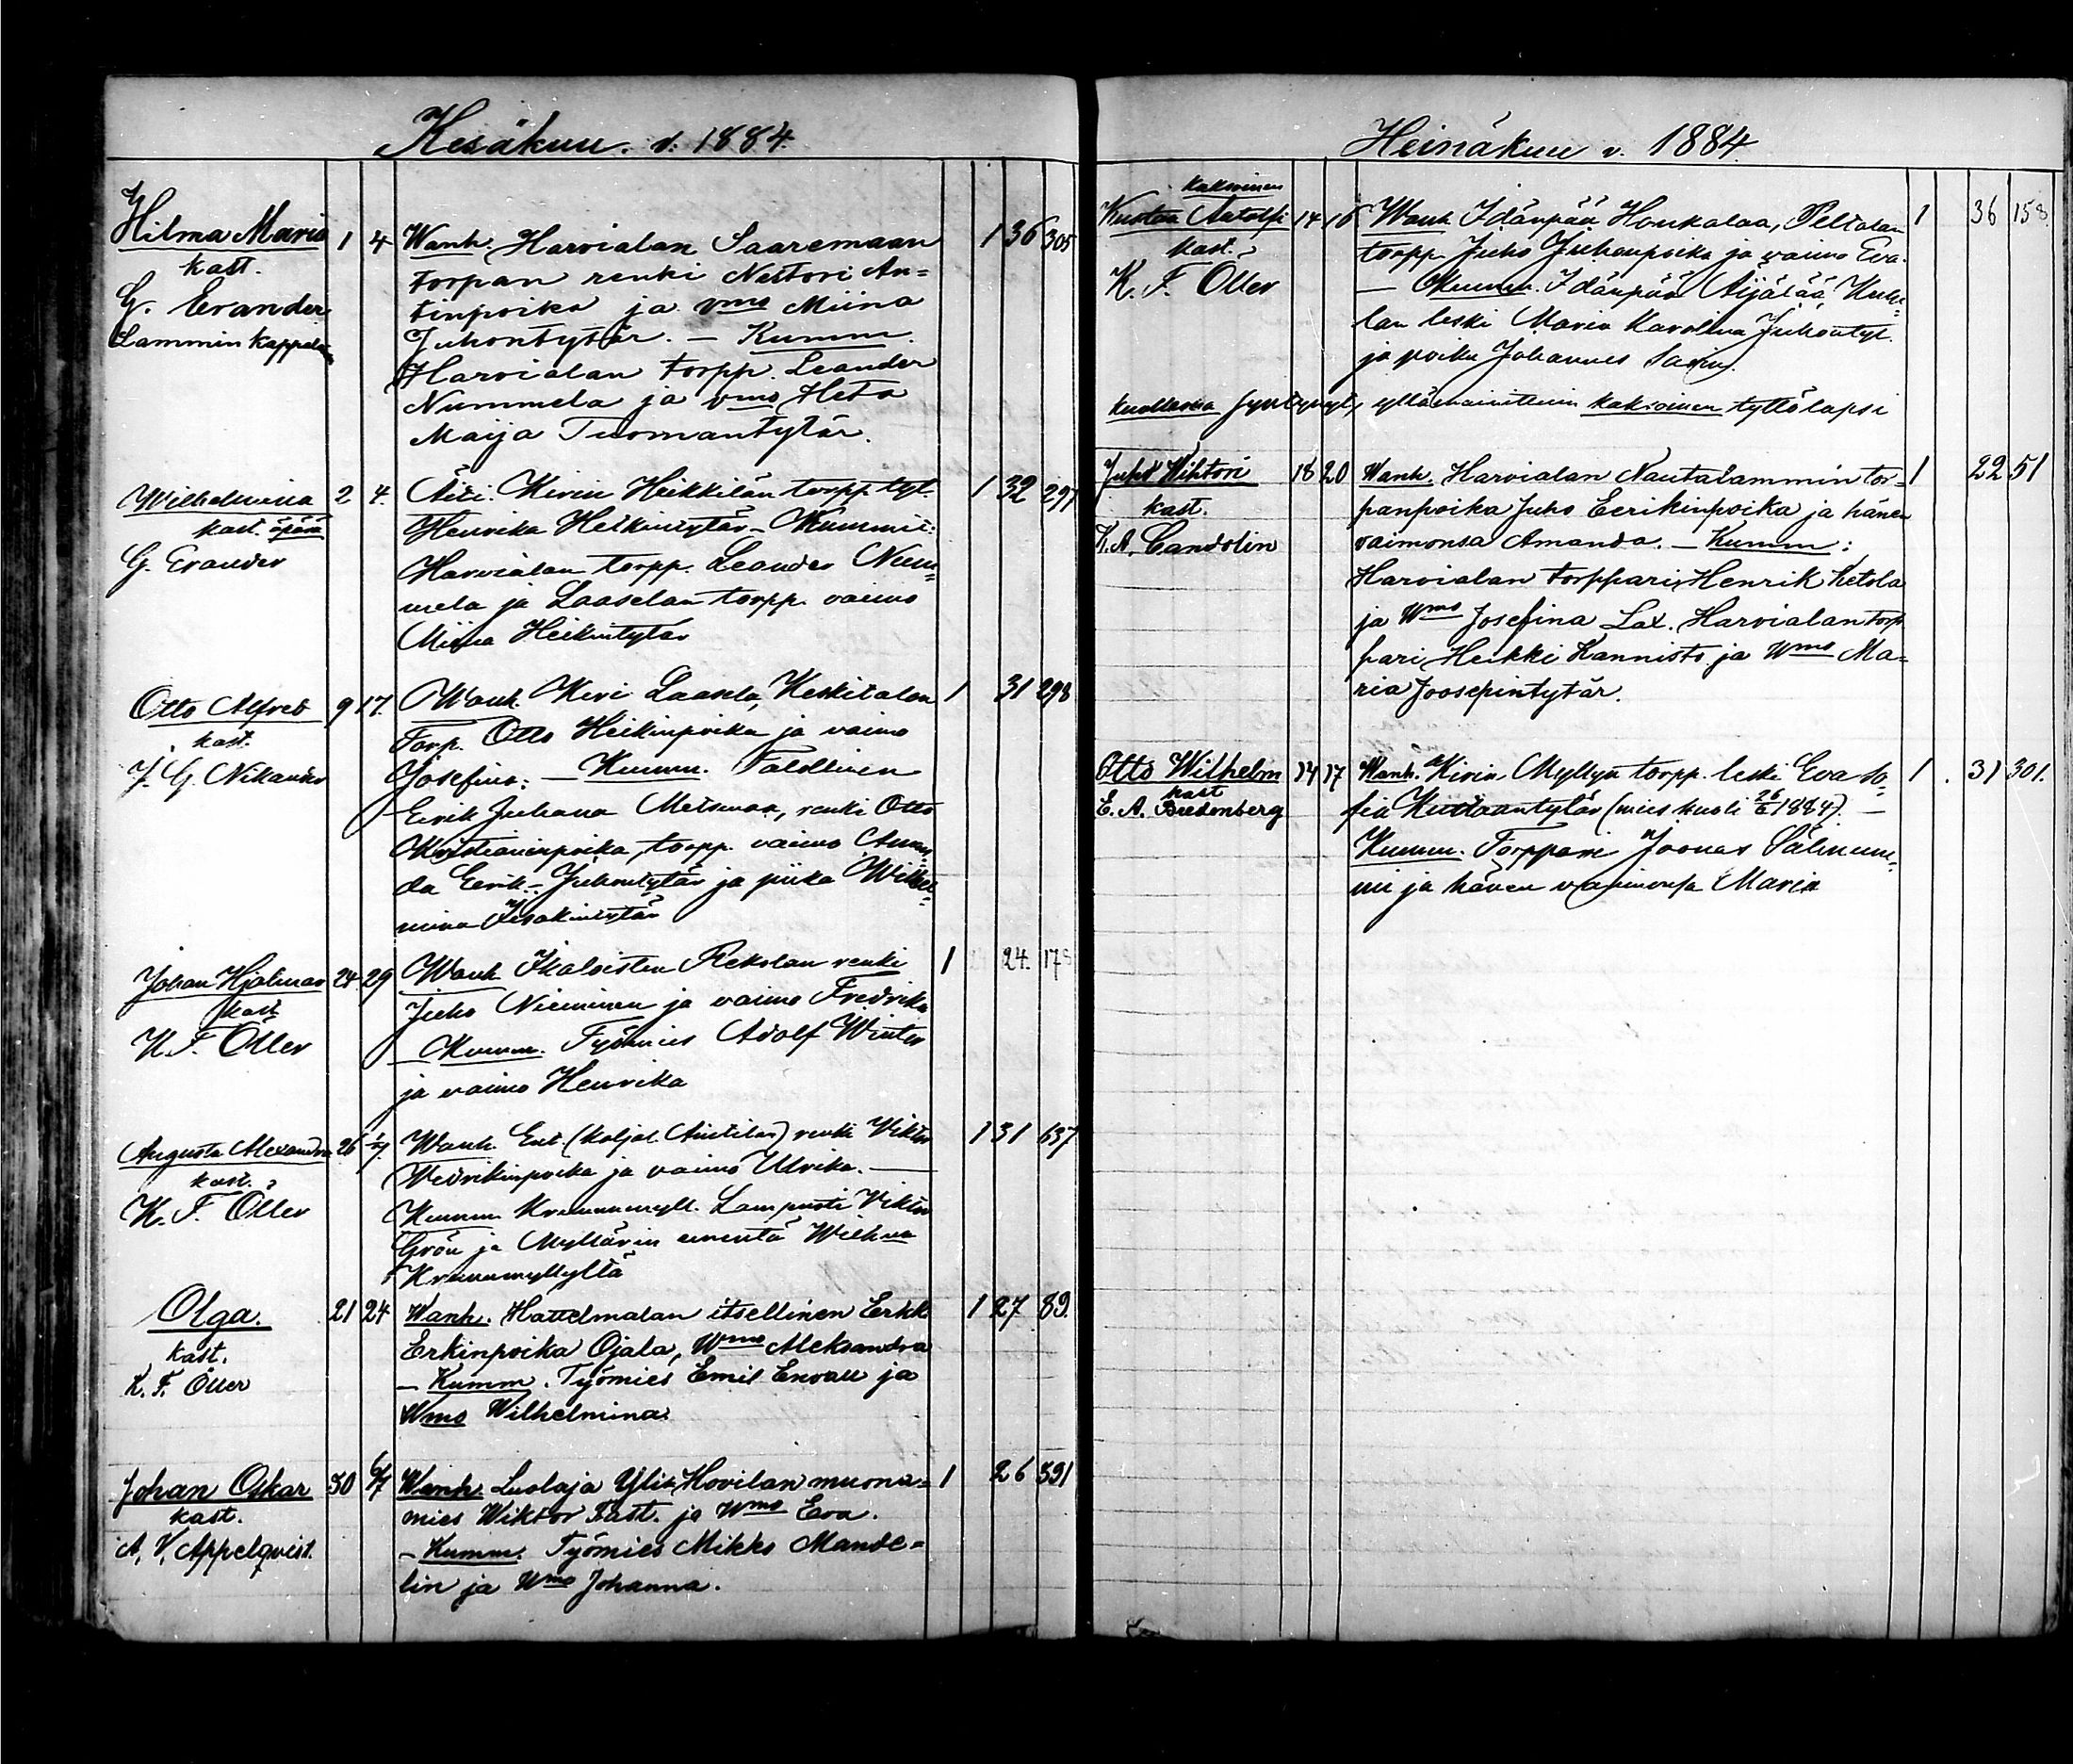 Kesäkuu v. 1884.
Hilma Maria 1 4 Wanh. Harvialan Saaremaan 1 36 305
kast.
torpan renki Nestori An=
G. Evander
tinpoika ja vmo Miina
Lammin kappelainen
Juhontytär. – Kumm.
Harvialan torpp. Leander
Nummela ja vmo Heta
Maija Tuomantytär.
Wilhelmina 2 4. Äiti. Kirin Heikkilän torpp. tyt. 1 32 297
kast. äpärä
Henrika Heikintytär – Kummit:
G. Evander
Harvialan torpp. Leander Num=
mela ja Laaselan torpp. vaimo
Miina Heikintytär
Otto Alfred 9 17. Wanh. Kiri Laasela, Keskitalon 1 31 298
kast.
Torp. Otto Heikinpoika ja vaimo
J. G. Nikander
Josefina. – Kumm. Talollinen
Eerik Juhana Metsmaa, renki Otto
Kristianinpoika, torpp. vaimo Aman=
da Eerik- Juhontytär ja piika Wilhel=
mina Iisakintytär
Johan Hjalmar 24 29 Wanh. Ikaloisten Rekolan renki 1 24. 178
kast
Juho Nieminen ja vaimo Fredrika
K. F. Öller
– Kumm. Työmies Adolf Winter
ja vaimo Henrika
Augusta Alexandra 26 1/7 Wanh. renki Viktor 1 31 637
kast.
ja vaimo Ulrika. –
K. F. Öller
Kumm. Lampuoti Viktor
Grön ja Myllärin emäntä
Kruunumyllyltä
Olga. 21 24 Wanh. Hattelmalan itsellinen Erkki 1 27 89.
kast.
Erkinpoika Ojala, Wmo Aleksandra
K. F. Öller
– Kumm. Työmies Emil Envall ja
Wmo Wilhelmina.
Johan Oskar 30 6/7 Wanh. Luolaja Yli Hovilan muona= 1 26 391
kast.
mies Wiktor Fast. ja Wmo Eva.
A. V. Appelqvist.
– Kumm. Työmies Mikko Mande=
lin ja Wmo Johanna.
Heinäkuu v. 1884.
kaksoinen
Kustaa Adolfi 14 16 Wanh. Idänpää Honkalaa, Peltolan 1 36 158.
kast.
torpp. Juho Juhanpoika ja vaimo Eva.
K. F. Öller
– Kumm. Idänpää Äijälää
lan leski Maria Karolina Juhontyt.
ja poika Johannes Savin.
Kuollaena syntynyt, yllämainittuin kaksoinen tyttölapsi
Juho Wihtori 18 20 Wanh. Harvialan Nautalammin tor= 1 22 51
kast.
panpoika Juho Eerikinpoika ja hänen
K. A. Candolin
vaimonsa Amanda. – Kumm:
Harvialan torppari Henrik Ketola
ja Wmo Josefina Lax. Harvialan torp
pari Heikki Kannisto ja Wmo Ma=
ria Joosepintytär.
Otto Wilhelm 14 17 Wanh. Kirin, Myllyn torpp. leski Eva So= 1 31 301.
kast
fia Kustaantytär (mies kuoli 26/6 1884). –
E. A. Bredenberg
Kumm. Torppari Joonas Sälinum=
mi ja hänen vaimonsa Maria